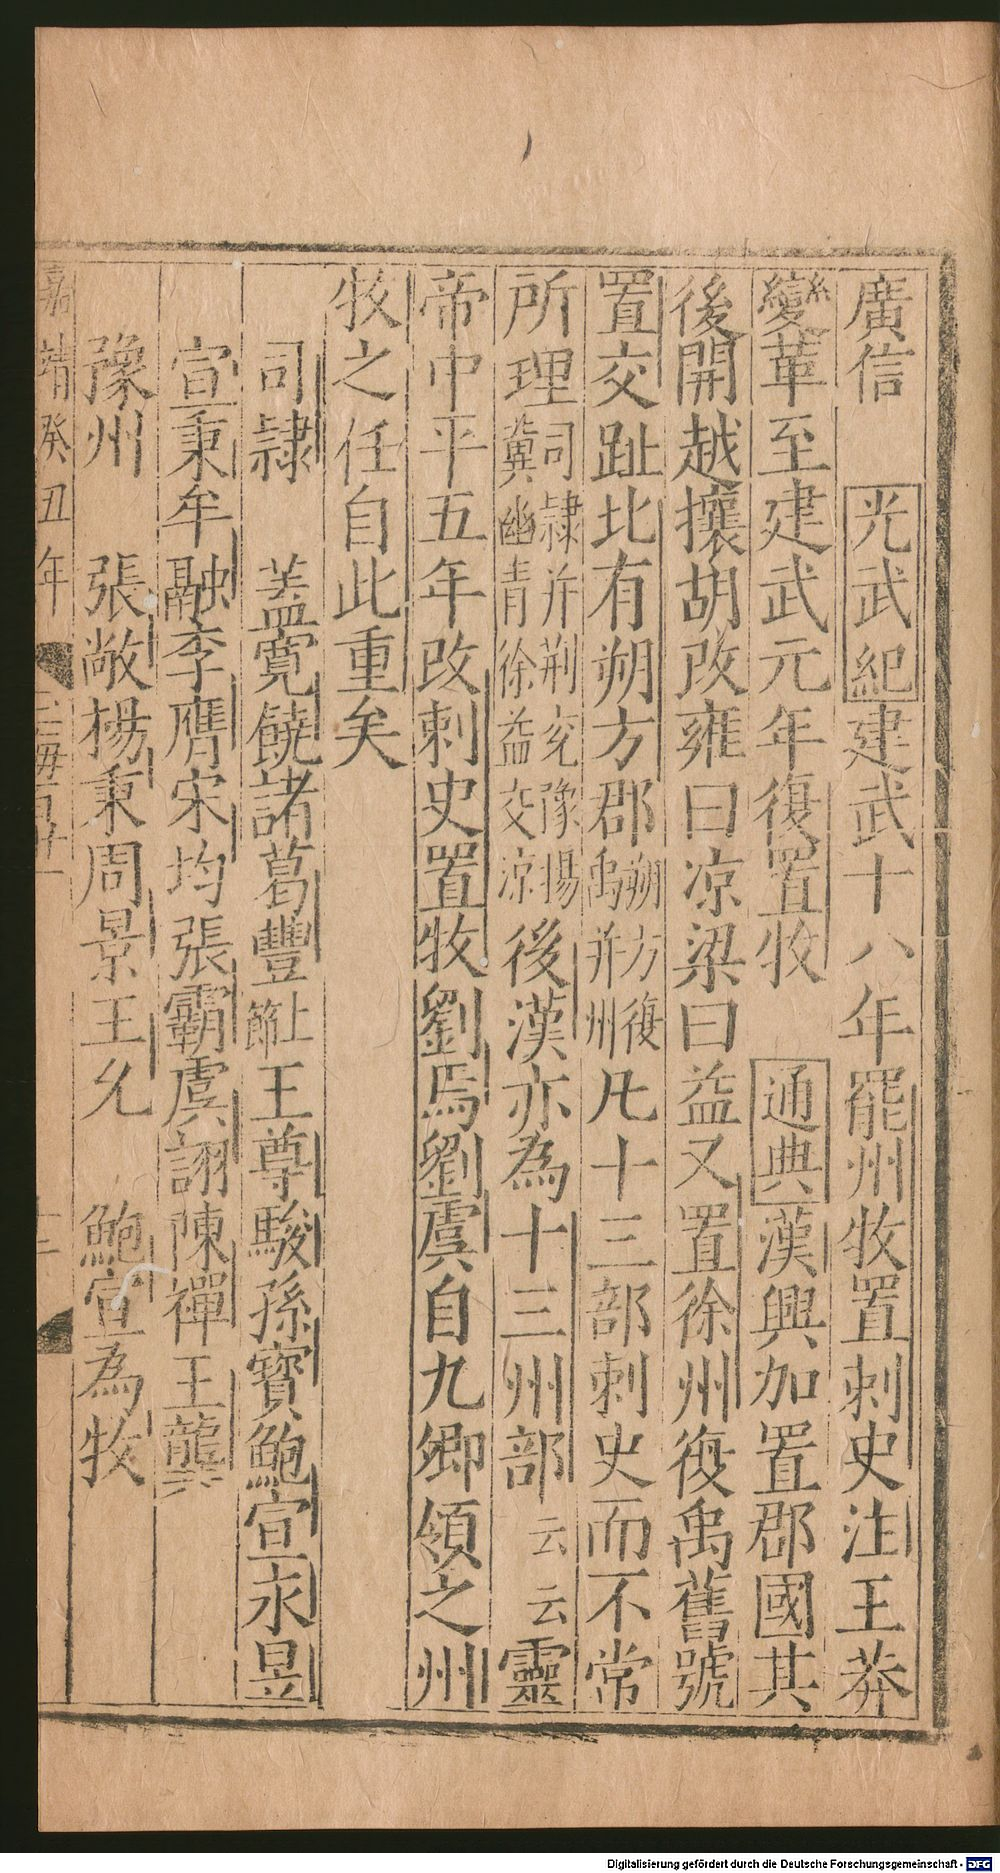 廣信 光武紀建武十八年罷州牧置刺史注王莽
變革至建武元年復置牧 通典漢興加置郡國其
後開越攘胡改雍曰凉梁曰益又置徐州復禹舊號
置交趾北有朔方郡朔方復禹并州凡十三部刺史而不常
所理司隷并荆兖豫揚冀幽青徐益交凉後漢亦為十三州部云云靈
帝中平五年改刺史置牧劉焉劉虞自九卿領之州
牧之任自此重矣
司隷 盖寛饒諸葛豐上節王尊駿孫寶鮑宣永昱
宣秉牟融李膺宋均張霸虞詡陳禪王龔
豫州 張敞楊秉周景王允 鮑宣為牧
嘉靖癸丑年 玉海百廿一 十三
Digitalisierung gefördert durch die Deutsche Forschungsgemeinschaft - DFG